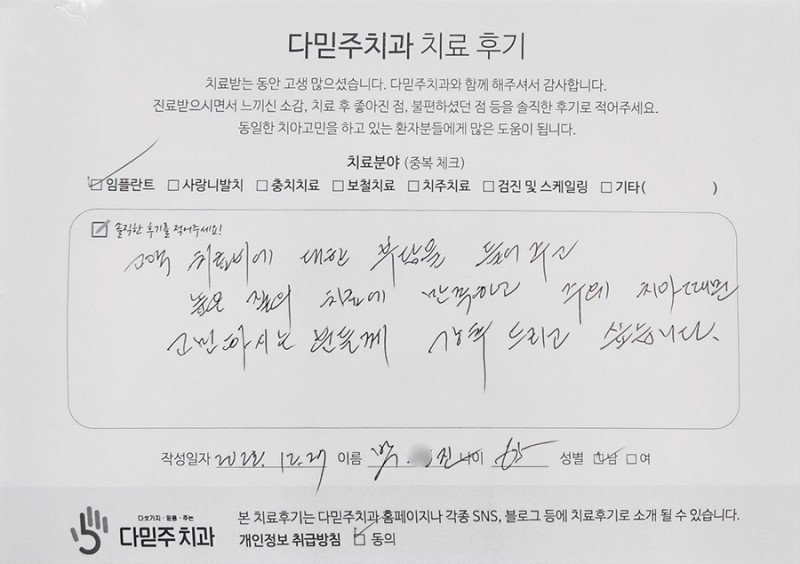 다믿주치과 치료 후기
치료받는 동안 고생 많으셨습니다. 다믿주치과와 함께 해주셔서 감사합니다.
진료받으시면서 느끼신 소감, 치료 후 좋아진 점, 불편하셨던 점 등을 솔직한 후기로 적어주세요.
동일한 치아고민을 하고 있는 환자분들에게 많은 도움이 됩니다.
치료분야 (중복 체크)
☑ 임플란트 ☐ 사랑니발치 ☐ 충치치료 ☐ 보철치료 ☐ 치주치료 ☐ 검진 및 스케일링 ☐ 기타( )
솔직한 후기를 적어주세요!
고액 치료비에 대한 부담을 덜어주고
높은 질의 치료에 만족하고 주위 치아때문
고민하시는 분들께 강력 드리고 싶습니다.
작성일자 2023. 12. 27 이름 박 진 나이 성별 ☑남 ☐여
다섯가지·믿음·주는
다믿주치과
본 치료후기는 다믿주치과 홈페이지나 각종 SNS, 블로그 등에 치료후기로 소개 될 수 있습니다.
개인정보 취급방침 ☑ 동의